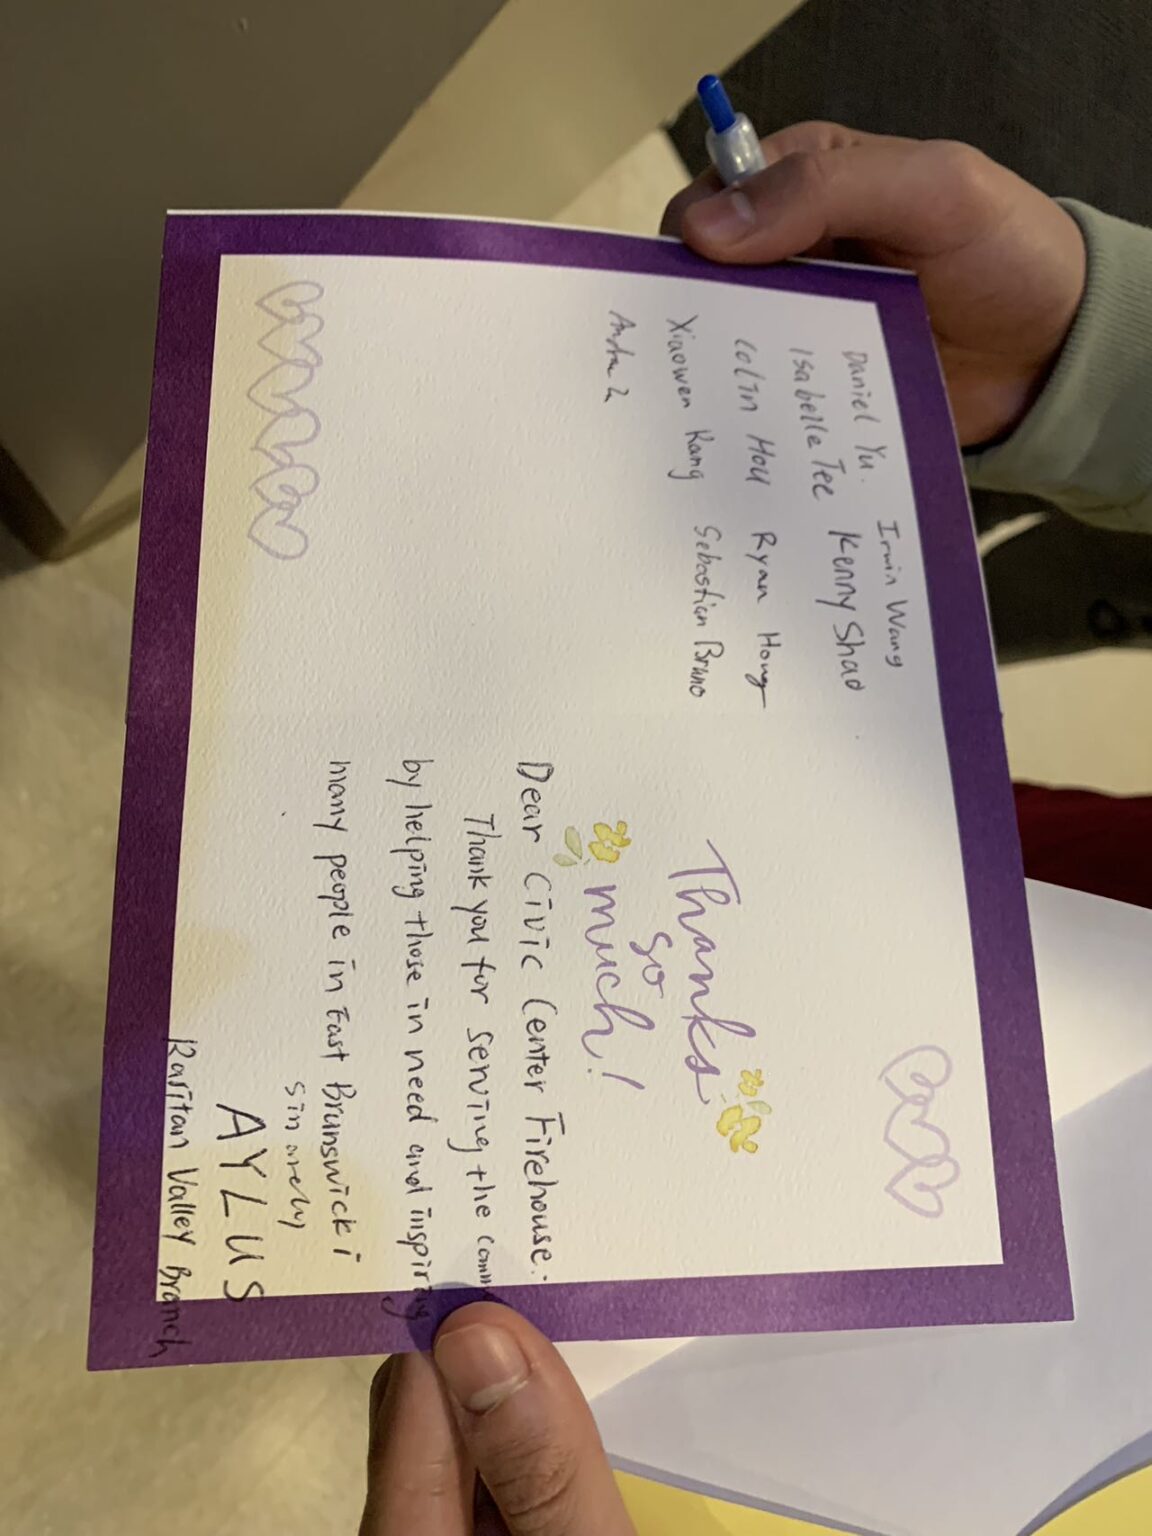 Irwin Wang
Daniel Yu.
Isabelle Tee Kenny Shao
Colin Hou Ryan Hong
Xiaowen Kang Sebastian Bruno
Thanks
so
much!
Dear Civic Center Firehouse:
Thank you for serving the comm
by helping those in need and inspiring
many people in East Brunswick!
AYLUS
Raritan Valley Branch